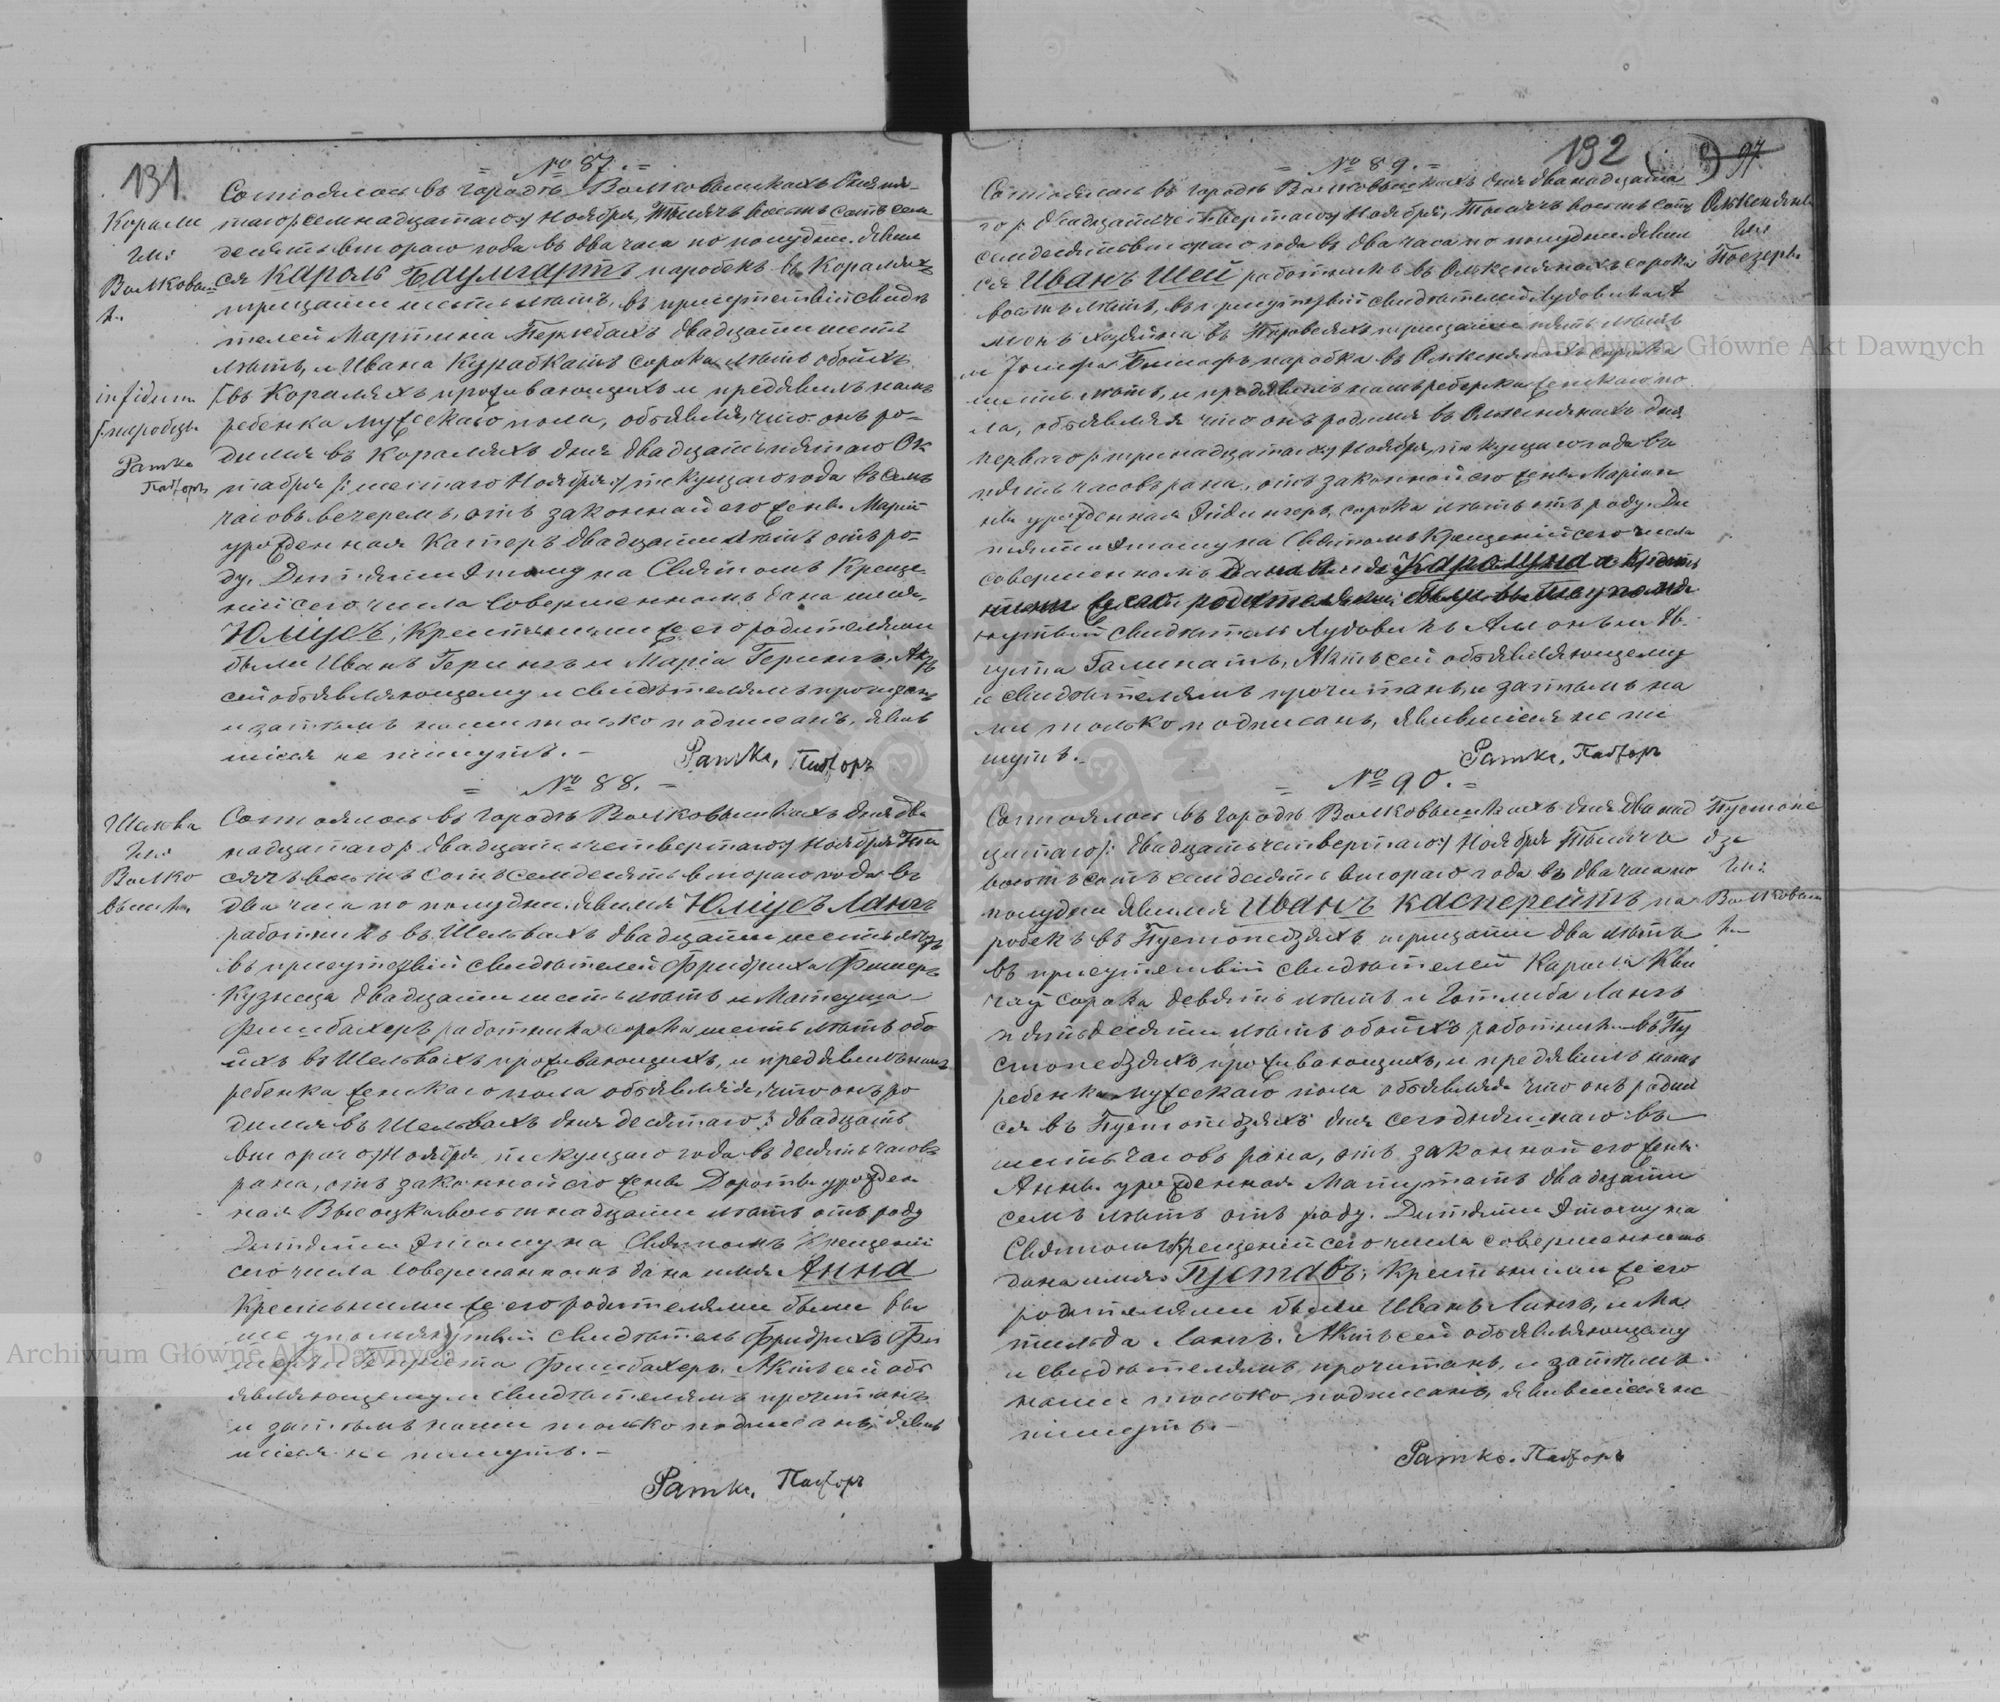 131.
№ 87.
Состоялось въ городѣ Волковышкахъ дня пя-
таго /: семнадцатаго :/ Ноября, Тысяча восемь сотъ семь
десятъ втораго года въ два часа по полудни. Явил
ся Кароль Баумгартъ паробекъ въ Кораляхъ
тридцати шесть лѣтъ, въ присутствіи свидѣ
телей Мартина двадцати шесть
лѣтъ, и Ивана сорока лѣтъ обоихъ
[въ Кораляхъ проживающихъ и предъявилъ намъ
ребенка мужескаго пола, объявляя, что онъ ро-
дился въ Кораляхъ дня двадцать пятаго Ок
тября /: шестаго Ноября :/ текущаго года въ семь
часовъ вечеромъ, отъ законной его жены Маріи
урожденная двадцати лѣтъ отъ ро-
ду. Дитяти этому на Святомъ Креще-
ніи сего числа совершенномъ дано имя
Юліусъ, Крестными же его родителями
были Иванъ Герингъ и Марія Герингъ. Актъ
сей объявляющему и свидѣтелямъ прочитанъ
и затѣмъ нами только подписанъ, явив
шіеся не пишутъ. -
Ратке, Пасторъ
Корали
Волковыш
infidem
Ратке
Пасторъ
№ 88.
Состоялось въ городѣ Волковышкахъ дня два
надцатаго /: двадцать четвертаго :/ Ноября Ты
сяча восемь сотъ семдесятъ втораго года въ
два часа по полудни. Явился Юліусъ Лангъ
работникъ въ Шельвахъ двадцати шесть лѣтъ
въ присутствіи свидѣтелей Фридриха Фишеръ
Кузнеца двадцати шесть лѣтъ и Матеуша
работника сорока шесть лѣтъ обо
ихъ въ Шельвахъ проживающихъ, и предъявилъ намъ
ребенка женскаго пола объявляя, что онъ ро
дился въ Шельвахъ дня десятаго /: двадцать
втораго :/ Ноября текущаго года въ десять часовъ
рана, отъ законной его жены Доротеи урожден
ная Высоцка восемнадцати лѣтъ отъ роду
Дитяти этому на Святомъ Крещеніи
сего числа совершенномъ дано имя Анна
Крестными же его родителями были вы
ше упомянутый свидѣтель Фридрихъ Фи
шеръ и Генріета Актъ сей объ
являющему и свидѣтелямъ прочитанъ
и затѣмъ нами только подписанъ, явив
шіеся не пишутъ. -
Ратке, Пасторъ
Волко
вышки
192
97
№ 89.
Состоялось въ городѣ Волковышкахъ дня двѣнадцата
го /: двадцать четвертаго :/ Ноября, Тысяча восемь сотъ
семдесятъ втораго года въ два часа по полудни. Явил
ся Иванъ Шей работникъ въ Олькснянахъ сорока
восемь лѣтъ, въ присутствіи свидѣтелей Лудовика
хозяина въ тридцати пять лѣтъ
и Іосифа паробка въ сорока
шесть лѣтъ, и предъявилъ намъ ребенка женскаго по
ла, объявляя что онъ родился въ дня
перваго /: тринадцатаго :/ Ноября, текущаго года въ
пять часовъ рана, отъ законной его жены Маріан
ны урожденная сорока лѣтъ отъ роду. Ди
тяти этому на Святомъ Крещеніи сего числа
совершенномъ дано имя Каролина а Крест
ными же его родителями были выше упомя
нутый свидѣтель Лудовикъ и Ав
густа Актъ сей объявляющему
и свидѣтелямъ прочитанъ, и затѣмъ на
ми только подписанъ, явившіеся не пи
шутъ. -
Ратке, Пасторъ
№ 90.
Состоялось въ городѣ Волковышкахъ дня двѣнад
цатаго /: двадцать четвертаго :/ Ноября Тысяча
восемь сотъ семдесятъ втораго года въ два часа по
полудни явился Иванъ Касперейтъ па
робекъ въ Пустопедзяхъ тридцати два лѣтъ
въ присутствіи свидѣтелей Кароля
сорока девять лѣтъ и Готлиба Лангъ
пятьдесяти лѣтъ обоихъ работники въ Пу
стопедзяхъ проживающихъ, и предъявилъ намъ
ребенка мужескаго пола объявляя что онъ родил
ся въ Пустопедзяхъ дня сегодняшнаго въ
шесть часовъ рана, отъ законной его жены
Анны урожденная двадцати
семь лѣтъ отъ роду. Дитяти этому на
Святомъ Крещеніи сего числа совершенномъ
дано имя Густавъ, Крестными же его
родителями были Иванъ Лангъ, и Ма
тильда Лангъ. Актъ сей объявляющему
и свидѣтелямъ прочитанъ, и затѣмъ
нами только подписанъ, явившіеся не
пишутъ. -
Ратке, Пасторъ
Пустопе
дзе
Волковыш
Archiwum Główne Akt Dawnych
Archiwum Główne Akt Dawnych